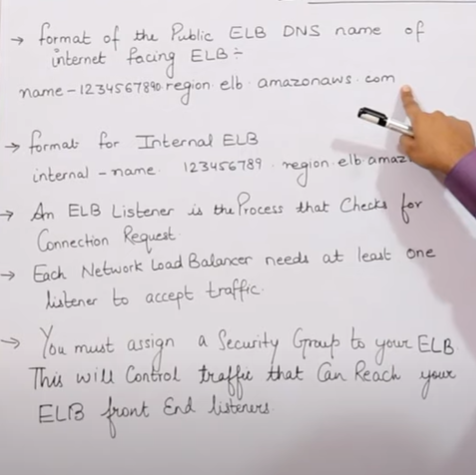 → format of the Public ELB DNS name of
internet facing ELB÷
name-1234567890.region.elb.amazonaws.com
→ format for Internal ELB
internal-name. 123456789.region.elb.amaz
→ An ELB Listener is the Process that Checks for
Connection Request.
→ Each Network Load Balancer needs at least one
listener to accept traffic.
→ You must assign a Security Group to your ELB.
This will Control traffic that Can Reach your
ELB front End listeners.